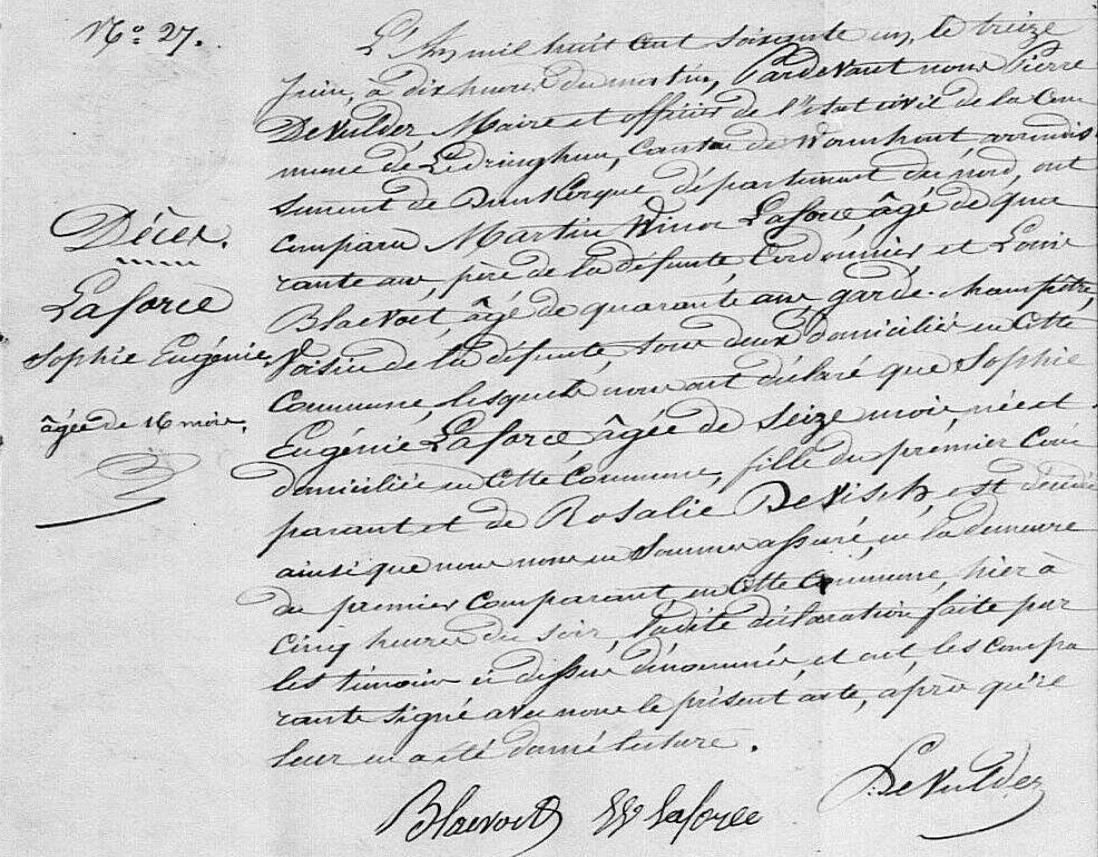 N.o 27.
Décès.
Laforce
Sophie Eugénie,
âgée de 16 mois.
L'An mil huit cent soixante un, le treize
Juin, à dix heures du matin, Pardevant nous Pierre
DeVulder, Maire et officier de l'état civil de la Com
mune de Ledringhem, Canton de Wormhout, arrondis
sement de Dunkerque département du nord, ont
comparu Martin Winoc Laforce, âgé de qua
rante ans, père de la défunte, Cordonnier et Louis
Blaevoet, âgé de quarante ans, garde-champêtre,
Voisin de la défunte, tous deux domiciliés en Cette
Commune, lesquels nous ont déclaré que Sophie
Eugénie Laforce, âgée de seize mois, née et
domiciliée en Cette Commune, fille du premier Com
parant et de Rosalie DeVisch, est décédée
ainsi que nous nous en sommes assuré, en la demeure
du premier Comparant en Cette Commune, hier à
Cinq heures du soir, ladite déclaration faite par
les témoins ci dessus dénommés, et ont les compa
rants signé avec nous le présent acte, après qu'il
leur en a été donné lecture.
Blaevoet W Laforce DeVulder